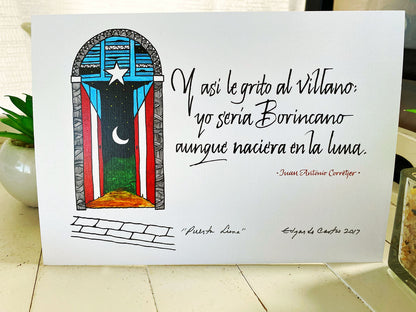 Y así le grito al Villano:
yo sería Borincano
aunque naciera en la luna.
· Juan Antonio Corretjer ·
"Puerta Luna"
Edgardo Castro 2017